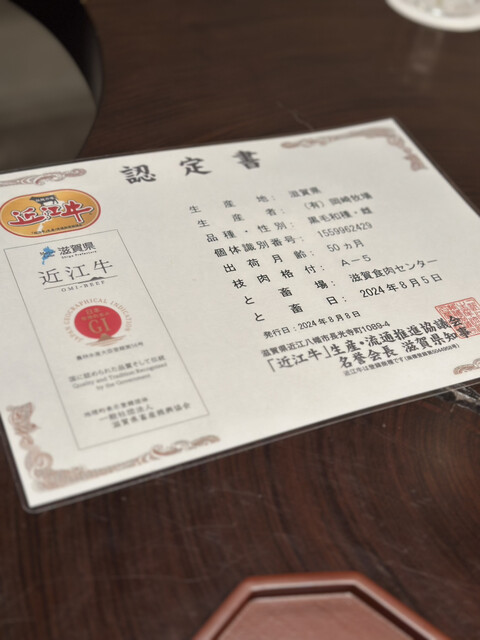 認定書
近江牛
滋賀県
Shiga Prefecture
近江牛
OMI-BEEF
JAPAN GEOGRAPHICAL INDICATION
GI
国に認められた品質そして伝統
Quality and Tradition Recognized
by the Government
一般社団法人
滋賀県畜産振興協会
生産地: 滋賀県
生産者: (有) 岡崎牧場
品種・性別: 黒毛和種・雌
個体識別番号: 1559962429
出荷月齢: 50 カ月
枝肉格付: A-5
と畜場: 滋賀食肉センター
と畜日: 2024年8月5日
発行日:2024年8月8日
滋賀県近江八幡市長光寺町1089-4
「近江牛」生産・流通推進協議会
名誉会長 滋賀県知事